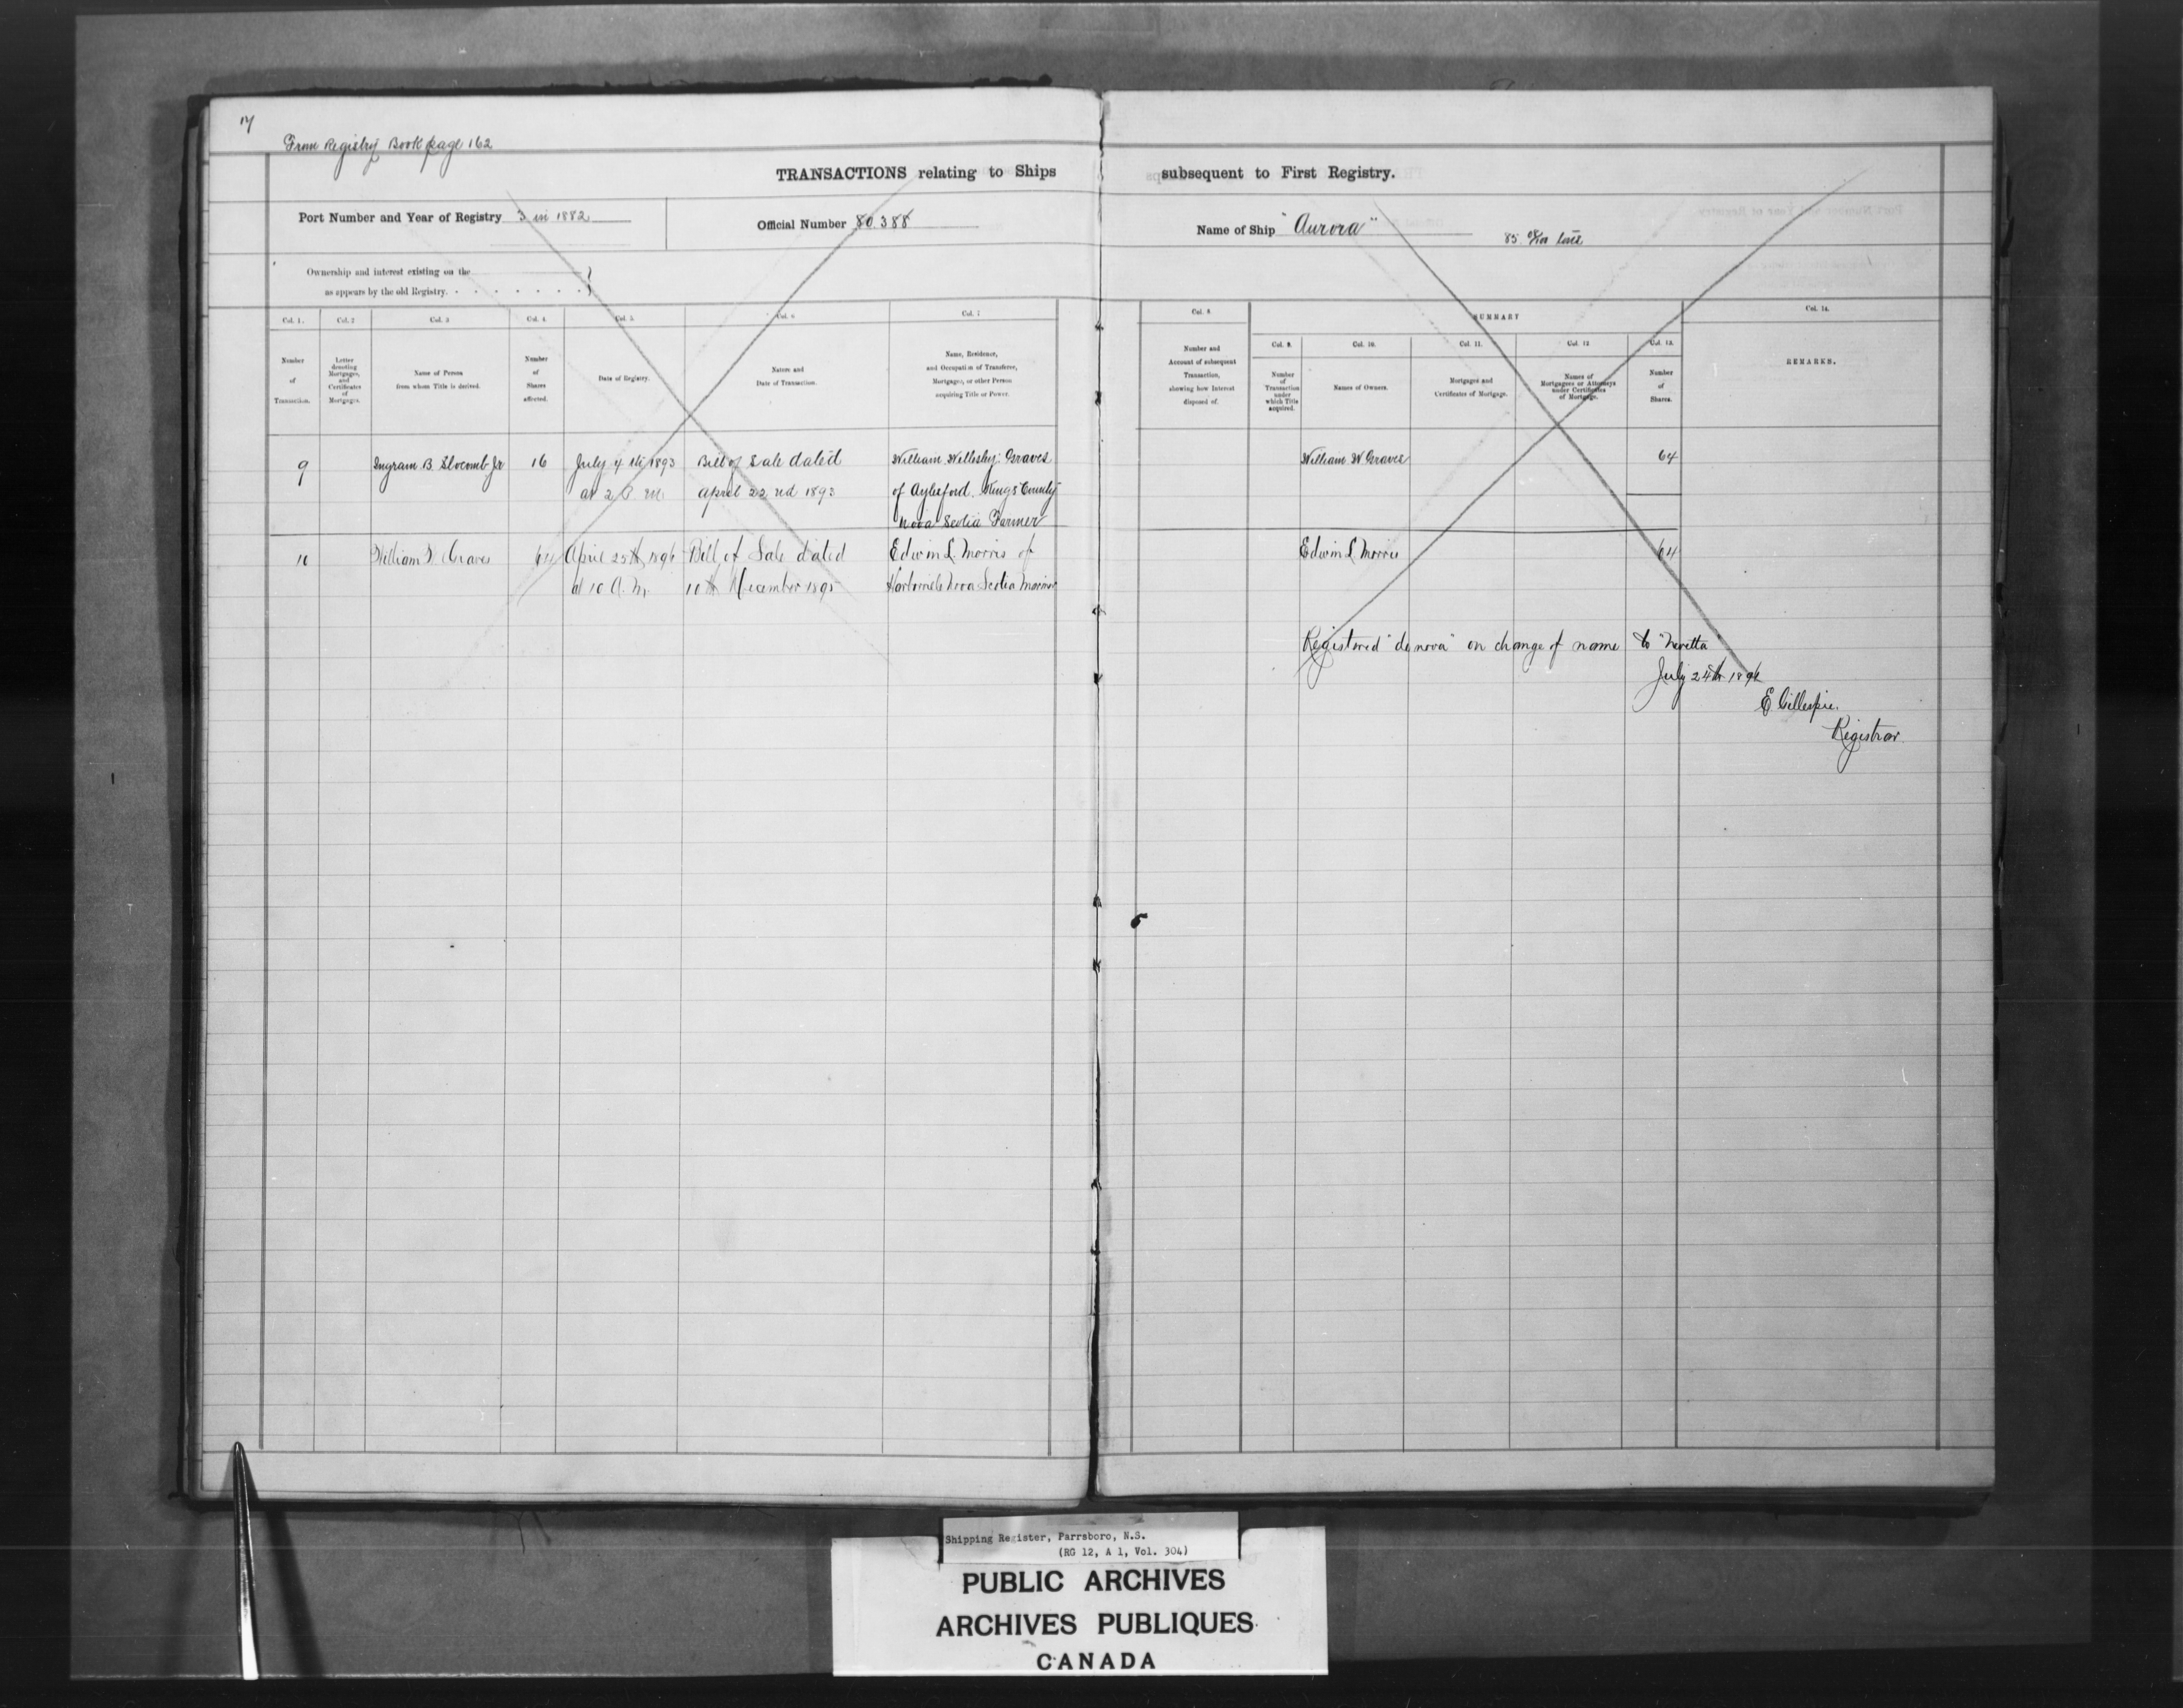 17
From Registry Book page 162
TRANSACTIONS relating to Ships subsequent to First Registry.
Port Number and Year of Registry 3 in 1882
Official Number 80.388
Name of Ship "Aurora"
85
Ownership and interest existing on the
as appears by the old Registry.
Col. 1.
Number
of
Transaction.
Col. 2
Letter
denoting
Mortgages,
and
Certificates
of
Mortgages.
Col. 3
Name of Person
from whom Title is derived.
Col. 4.
Number
of
Shares
affected.
Col. 5.
Date of Registry.
Col. 6
Nature and
Date of Transaction.
Col. 7
Name, Residence,
and Occupation of Transferee,
Mortgagee, or other Person
acquiring Title or Power.
Col. 8
Number and
Account of subsequent
Transaction,
showing how Interest
disposed of.
SUMMARY
Col. 9.
Number
of
Transaction
under
which Title
acquired.
Col. 10.
Names of Owners.
Col. 11.
Mortgages and
Certificates of Mortgage.
Col. 12
Names of
Mortgagees or Attorneys
under Certificates
of Mortgage.
Col. 13.
Number
of
Shares.
Col. 14.
REMARKS.
9
Ingram B Slocomb Jr
16
July 4th 1893
at 2 P. M
Bill of Sale dated
April 22nd 1893
William Wellesley Graves
of Aylesford Kings County
Nova Scotia Farmer
William W Graves
64
10
William W. Graves
64
April 25th 1896
at 10 A. M.
Bill of Sale dated
10th December 1895
Edwin L. Morris of
Nova Scotia Mariner
Edwin L Morris
64
Registered "de nova" on change of name to "
July 24th 1896
E Gillespie.
Registrar.
Shipping Register, Parrsboro, N.S.
(RG 12, A 1, Vol. 304)
PUBLIC ARCHIVES
ARCHIVES PUBLIQUES
CANADA